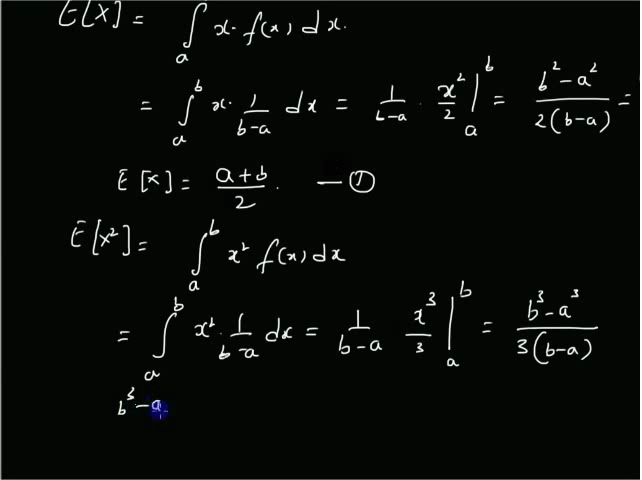 E[X] = ∫ₐ x· f(x) dx.
= ∫ₐᵇ x· 1/(b-a) dx = 1/(b-a) · x²/2 |ₐᵇ = (b² - a²)/(2(b-a)) =
E[x] = (a+b)/2 . — ①
E[x²] = ∫ₐᵇ x² f(x) dx
= ∫ₐᵇ x² · 1/(b-a) dx = 1/(b-a) x³/3 |ₐᵇ = (b³ - a³)/(3(b-a))
b³ - a